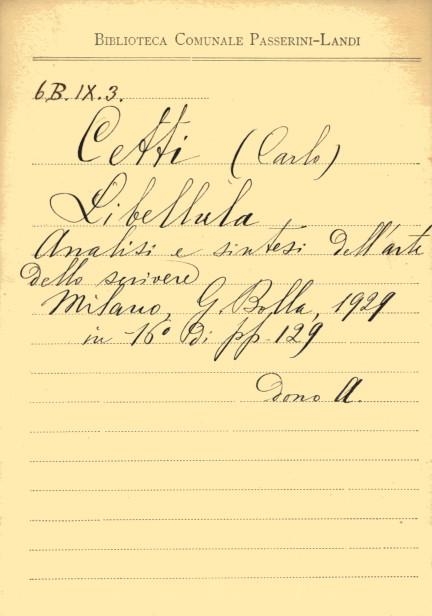 BIBLIOTECA COMUNALE PASSERINI-LANDI
6.B.IX.3.
Cetti (Carlo)
Libellula
Analisi e sintesi dell'arte
dello scrivere
Milano, G. Bolla, 1929
in -16° di pp. 129
Dono A.